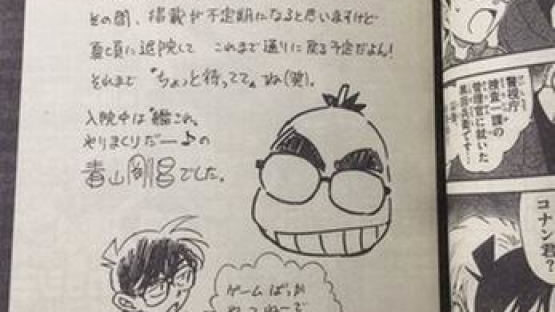 その間、掲載が不定期になると思いますけど
夏頃に退院して これまで通りに戻る予定だよん!
それまで〝ちょっと待ってて〟ね(笑)。
入院中は〝艦これ〟
やりまくりだー♪の
青山剛昌でした。
ゲームばっか
やってねーで
警視庁
捜査一課の
管理官に就いた
黒田兵衛です…
コナン君?